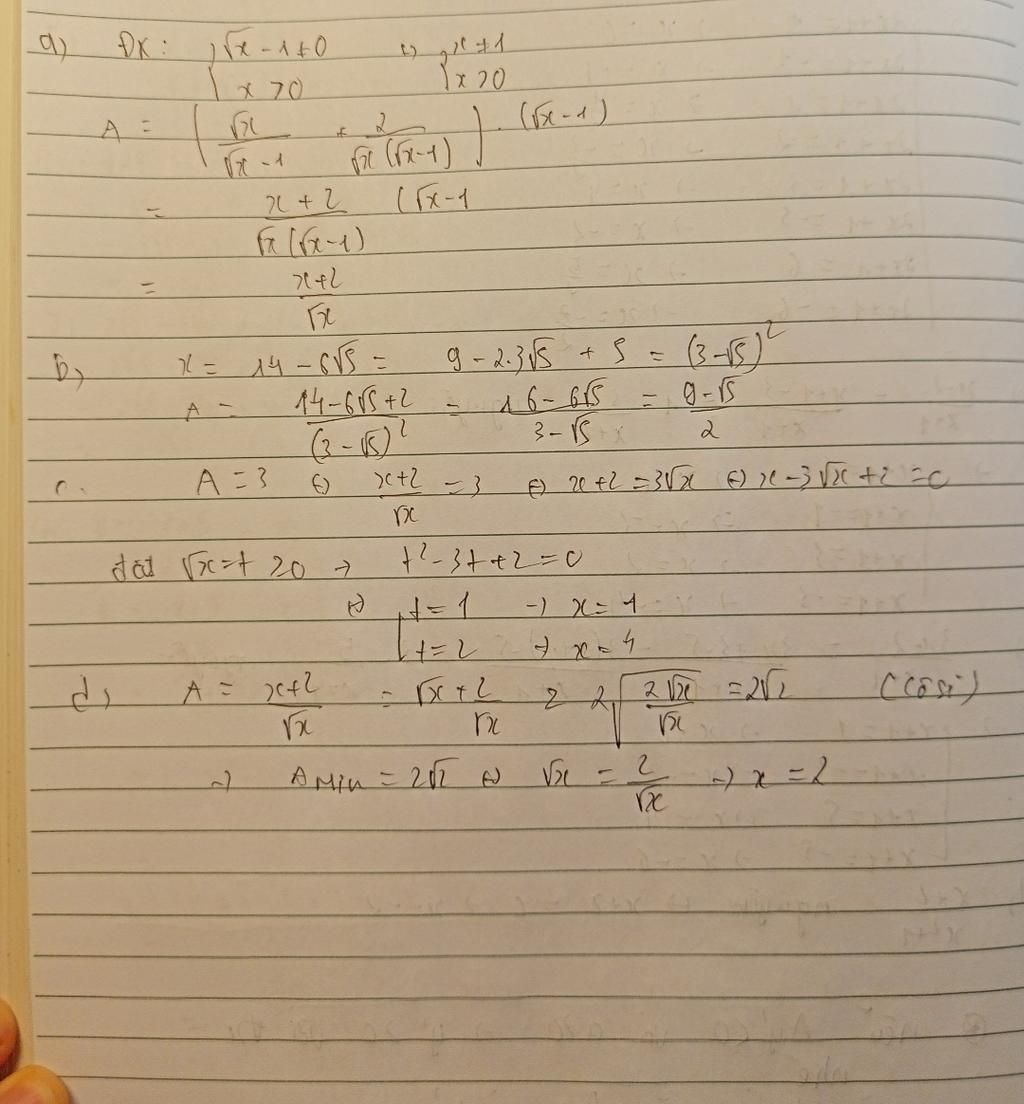 a) ĐK: { √x - 1 ≠ 0 ⇔ { x ≠ 1
x > 0 x > 0
A = ( √x/(√x - 1) + 2/(√x(√x-1)) ) . (√x - 1)
= (x + 2)/(√x(√x-1)) (√x - 1
= (x+2)/√x
b) x = 14 - 6√5 = 9 - 2.3√5 + 5 = (3-√5)²
A = (14-6√5+2)/(3-√5)² = (16-6√5)/(3-√5) = (9-√5)/2
c. A = 3 ⇔ (x+2)/√x = 3 ⇔ x+2 = 3√x ⇔ x - 3√x + 2 = 0
đặt √x = t ≥ 0 → t² - 3t + 2 = 0
⇔ [ t = 1 → x = 1
t = 2 → x = 4
d) A = (x+2)/√x = √x + 2/√x ≥ 2√(2√x/√x) = 2√2 (Côsi)
→ A Min = 2√2 ⇔ √x = 2/√x → x = 2